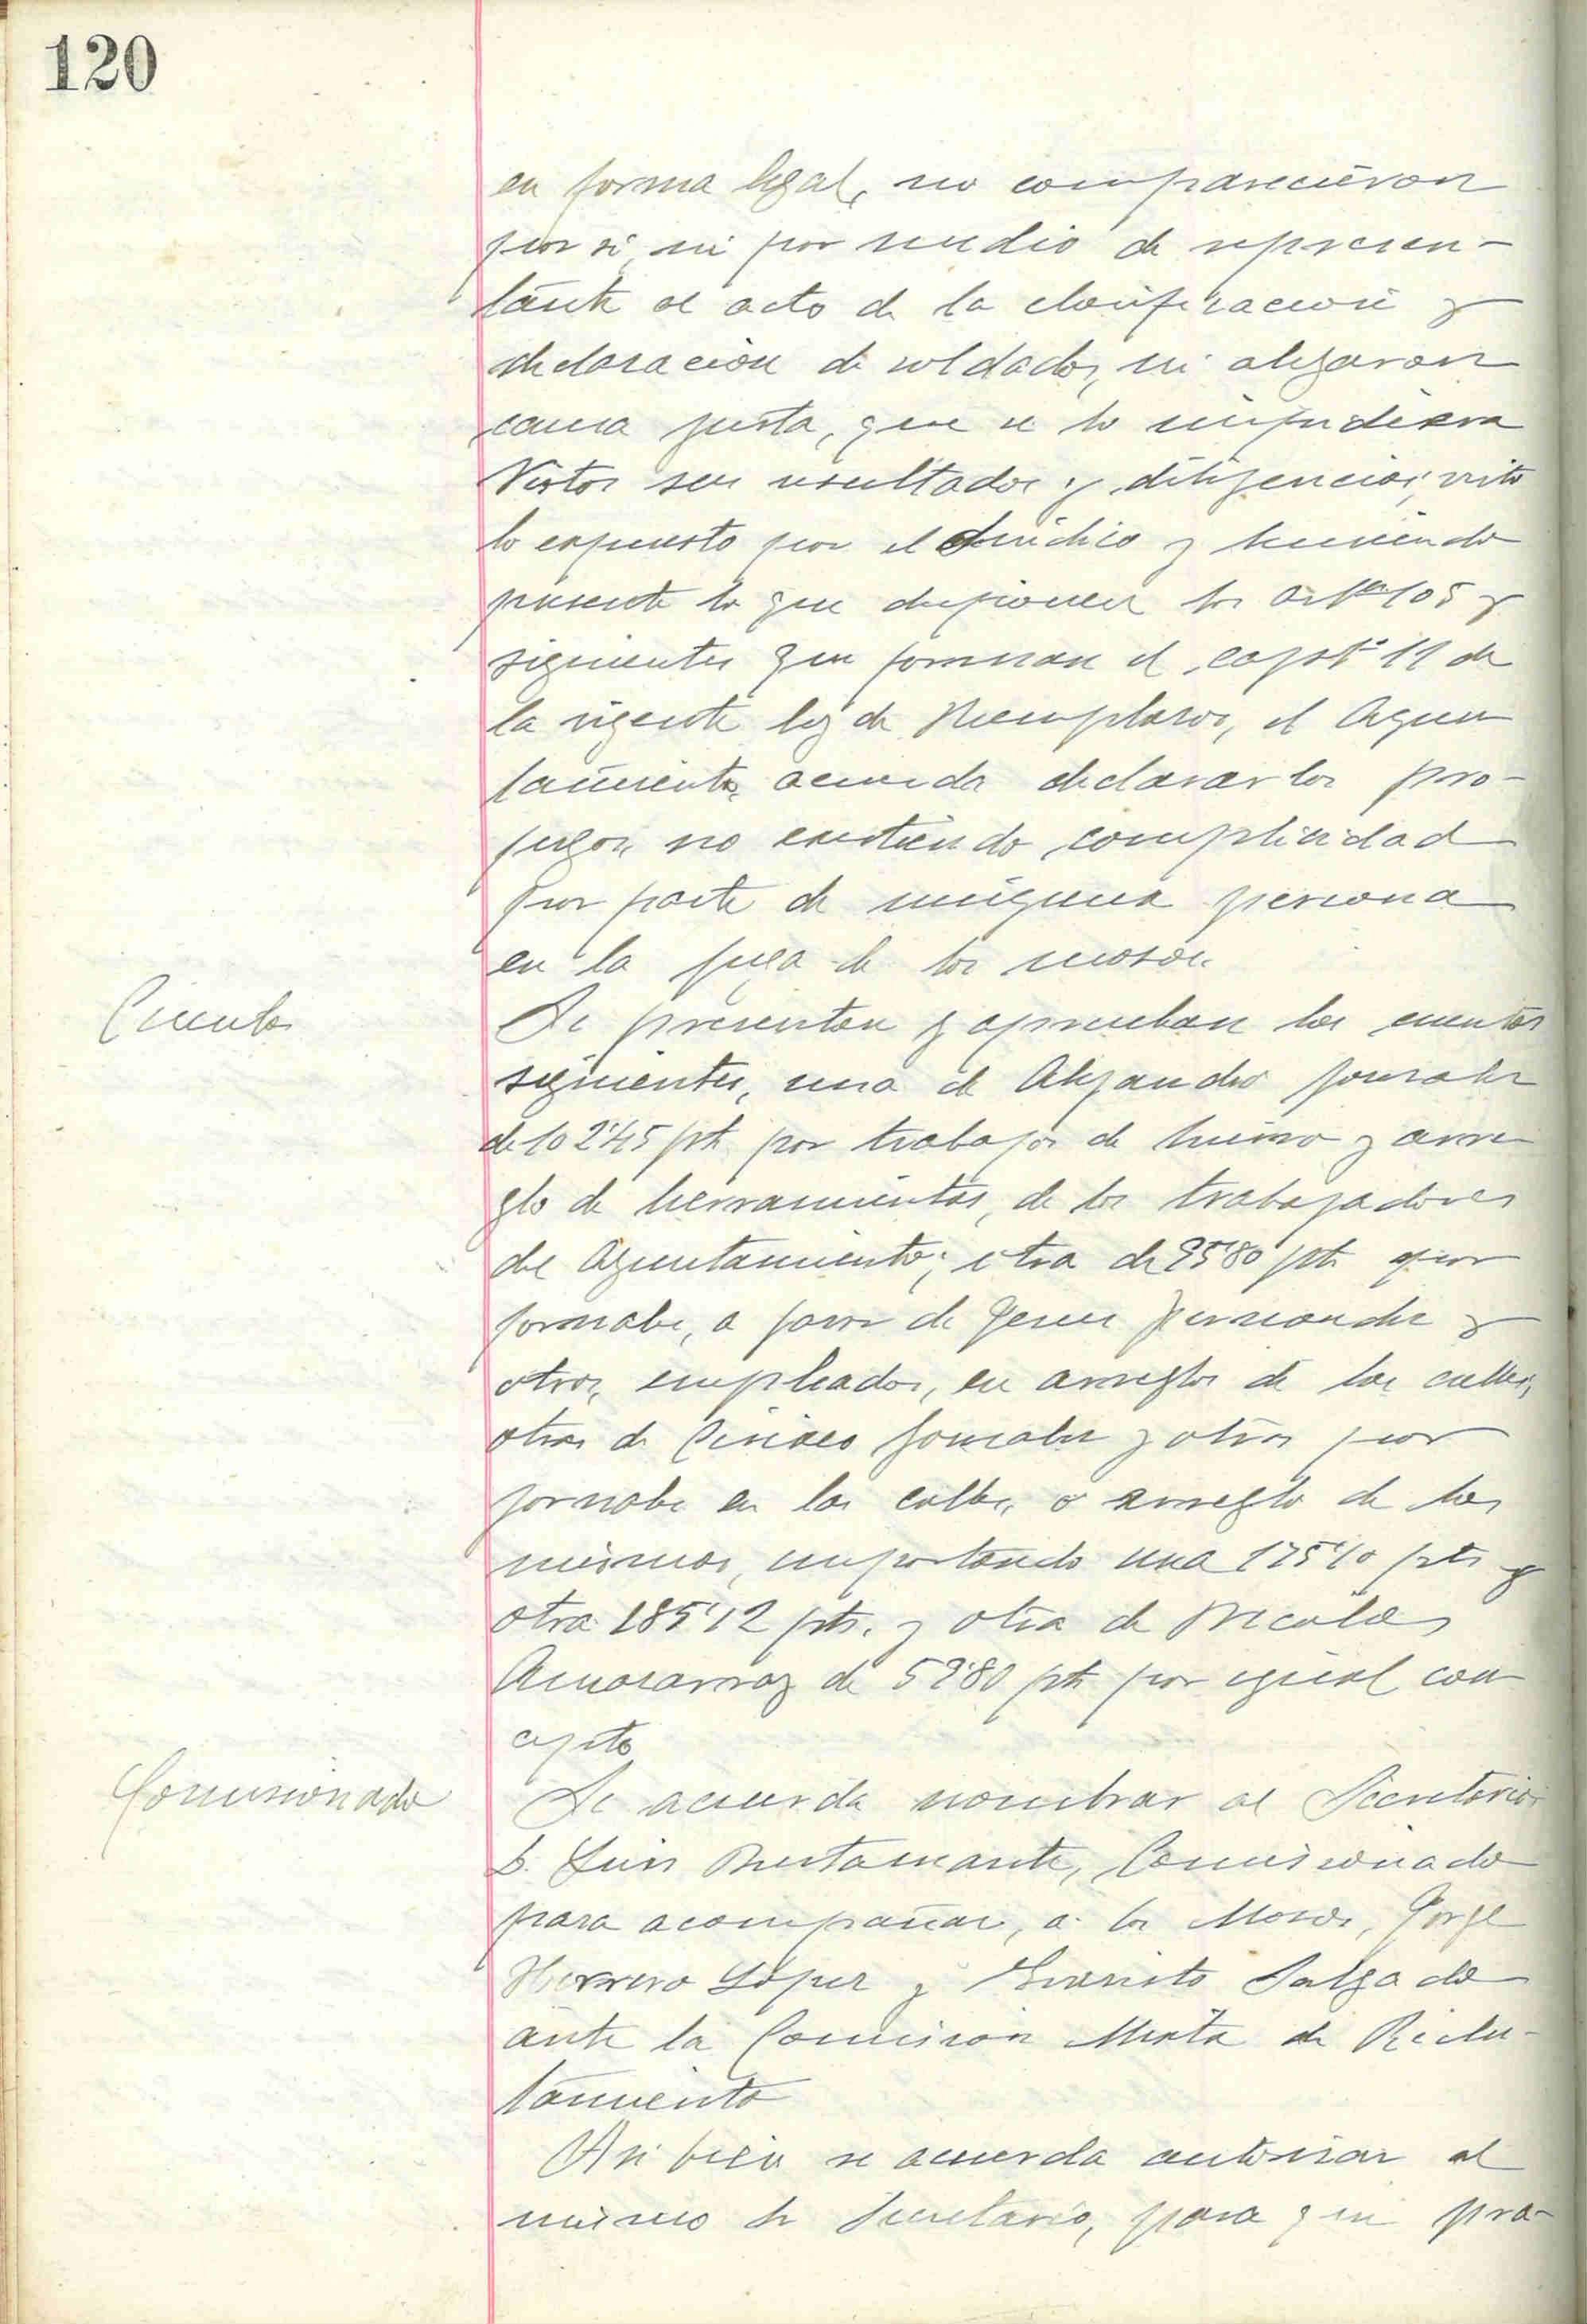 120
en forma legal, no comparecieron
por si, ni por medio de represen-
tante al acto de la clasificación y
declaración de soldados, ni alegaron
causa justa, que se lo impidiera
Vistos sus resultados y diligencias, visto
lo expuesto por el Síndico y teniendo
presente lo que disponen los artos 105 y
siguientes que forman el capto 11 de
la vigente ley de Reemplazos, el Ayun
tamiento, acuerda declararlos pro-
fugos, no existiendo complicidad
por parte de ninguna persona
en la fuga de los mozos.
Cuentas
Se presentan y aprueban las cuentas
siguientes, una de Alejandro Gonzalez
de 102'45 pts por trabajos de herrero y arre
glo de herramientas, de los trabajadores
del Ayuntamiento; otra de 95'80 pts por
jornales, a favor de Jesus Fernandez y
otros, empleados, en arreglos de las calles,
otras de Ciriaco Gonzalez y otros por
jornales en las calles, o arreglo de las
mismas, importando una 175'10 pts y
otra 185'12 pts. y otra de Nicolas
de 59'80 pts por igual con
cepto
Comisionado
Se acuerda nombrar al Secretario
D. Luis Bustamante, Comisionado
para acompañar, a los Mozos, Jorge
Herrero López y Evaristo Salgado
ante la Comisión Mixta de Reclu-
tamiento
Asi bien se acuerda autorizar al
mismo Sr Secretario, para que pra-